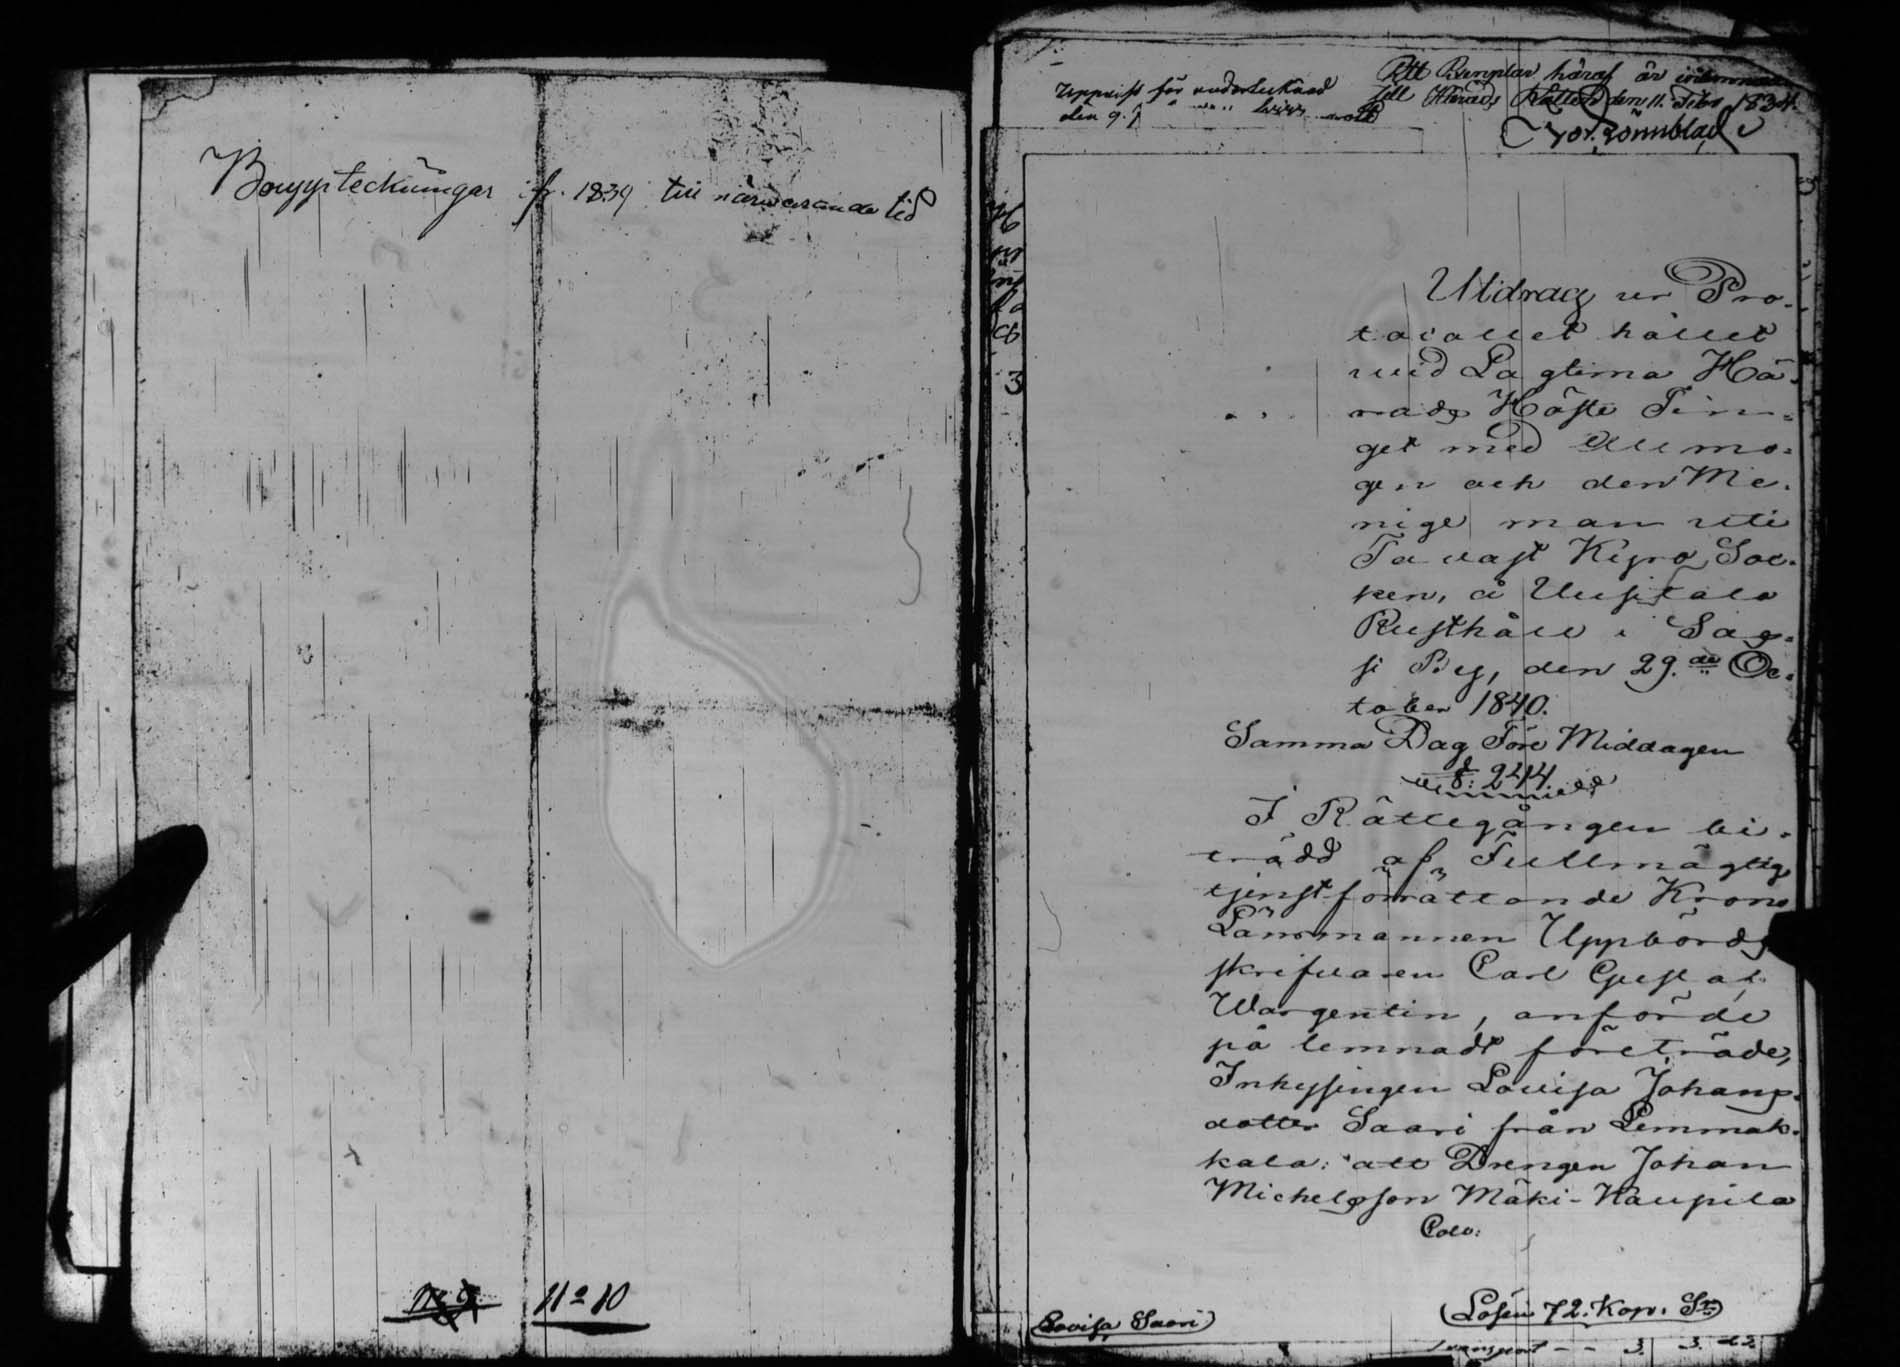 Bouppteckningar fr. 1839 till närwarande tid
No 9
No 10
Uppvist för undertecknad
den 9.
Ett Exemplar häraf är inlemnat
till Härads Rätten den 11. Febr 1834.
Rönnblad
Utdrag ur Pro-
tocollet hållet
wid Lagtima Hä-
rads Höste Tin-
get med Allmo-
gen och den Me-
nige man uti
Tavast Kyro Soc-
ken, å Uusitalo
Rusthåll i Sag-
si By, den 29.de Oc-
tober 1840.
Samma Dag Före Middagen
§: 244.
I Rättegången bi-
trädd af Fullmägtig
tjenstförrättande Krono
Länsmannen Uppbörds
skrifvaren Carl Gustaf
Wargentin, anförde
på lemnadt företräde,
Inhysingen Lovisa Johans-
dotter Saari från Lemmak-
kala: att Drengen Johan
Michelsson Mäki-Kaupila
Lovisa Saari
Lösen 72. Kop. Sr
Transport - - 3.